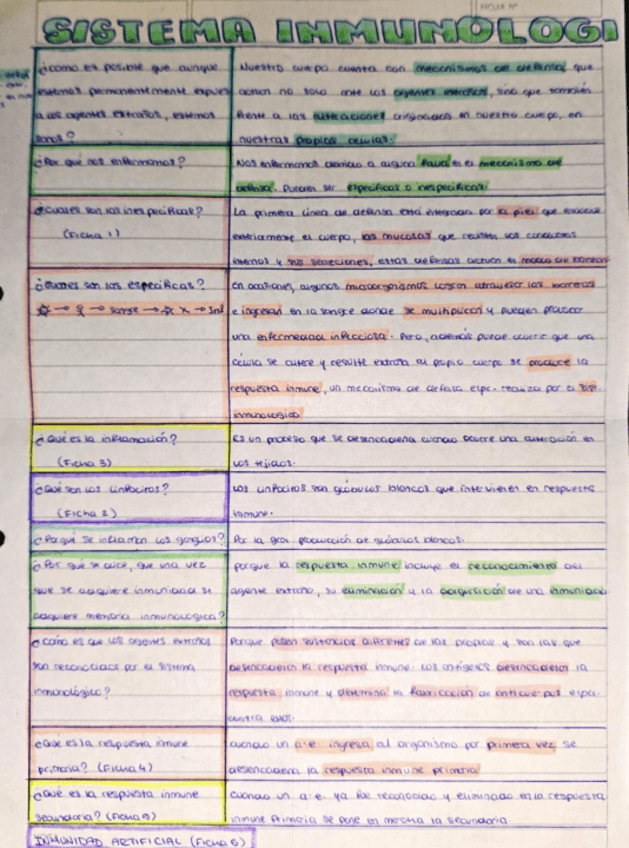 SISTEMA INMUNOLOGI
¿Cómo es posible que aunque
estemos permanentemente expues
a los agentes extraños, estemos
sanos?
Nuestro cuerpo cuenta con mecanismos de defensa que
actúan no solo ante los agentes extraños, sino que también
frente a las alteraciones originadas en nuestro cuerpo, en
nuestras propias celulas.
¿Por qué nos enfermamos?
Nos enfermamos debido a alguna falla en el mecanismo de
defensa. Pueden ser especificas o inespecificas.
¿Cuáles son las inespecificas?
(Ficha 1)
La primera linea de defensa está integrada por la piel que envuelve
exteriormente el cuerpo, las mucosas que revisten los conductos
internos y sus secreciones, estas defensas actúan a modo de barrera
¿Cuáles son las especificas?
→ → sangre → x →
En ocasiones, algunos microorganismos logran atravesar las barreras
e ingresan en la sangre donde se multiplican y pueden provocar
una enfermedad infecciosa. Pero, además puede ocurrir que una
célula se altere y resulte extraña al propio cuerpo se produce la
respuesta inmune, un mecanismo de defensa espe. realiza por el sist.
inmunologico
¿Qué es la inflamación?
(Ficha 3)
Es un proceso que se desencadena cuando ocurre una alteración en
los tejidos.
¿Qué son los linfocitos?
(Ficha 2)
Los linfocitos son glóbulos blancos que intervienen en respuesta
inmune.
¿Porqué se inflaman los ganglios?
Por la gran producción de glóbulos blancos.
¿Por qué se dice, que una vez
que se adquiere inmunidad se
adquiere memoria inmunologica?
porque la respuesta inmune incluye el reconocimiento del
agente extraño, su eliminación y la adquisición de una inmunidad.
¿Cómo es que los agentes extraños
son reconocidos por el sistema
inmunológico?
Porque poseen sustancias diferentes de las propias y son las que
desencadenan la respuesta inmune. Los antígenos desencadenan la
respuesta inmune y determina la fabricación de anticuerpos espe.
contra ellos.
¿Qué es la respuesta inmune
primaria? (Ficha 4)
cuando un a.e ingresa al organismo por primera vez se
desencadena la respuesta inmune primaria
¿Qué es la respuesta inmune
secundaria? (Ficha 5)
cuando un a.e. ya fue reconocido y eliminado en la respuesta
inmune Primaria se pone en marcha la secundaria.
INMUNIDAD ARTIFICIAL (Ficha 6)